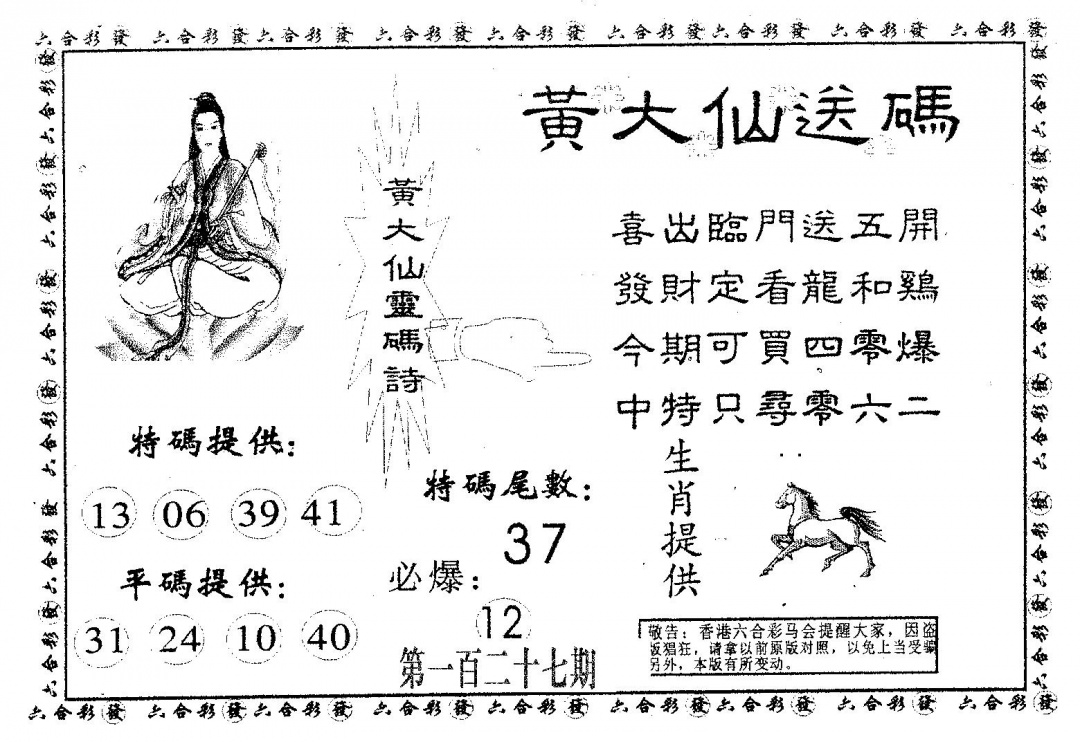 六合彩發 六合彩發 六合彩發 六合彩發 六合彩發 六合彩發 六合彩發 六合彩發 六合彩發
黃大仙送碼
黃大仙靈碼詩
喜出臨門送五開
發財定看龍和鷄
今期可買四零爆
中特只尋零六二
特碼提供：
13 06 39 41
平碼提供：
31 24 10 40
特碼尾數：
37
必爆：
12
第一百二十七期
生肖提供
敬告：香港六合彩马会提醒大家，因盗
版猖狂，请拿以前原版对照，以免上当受骗
另外，本版有所变动。
六合彩發 六合彩發 六合彩發 六合彩發 六合彩發 六合彩發 六合彩發 六合彩發 六合彩發